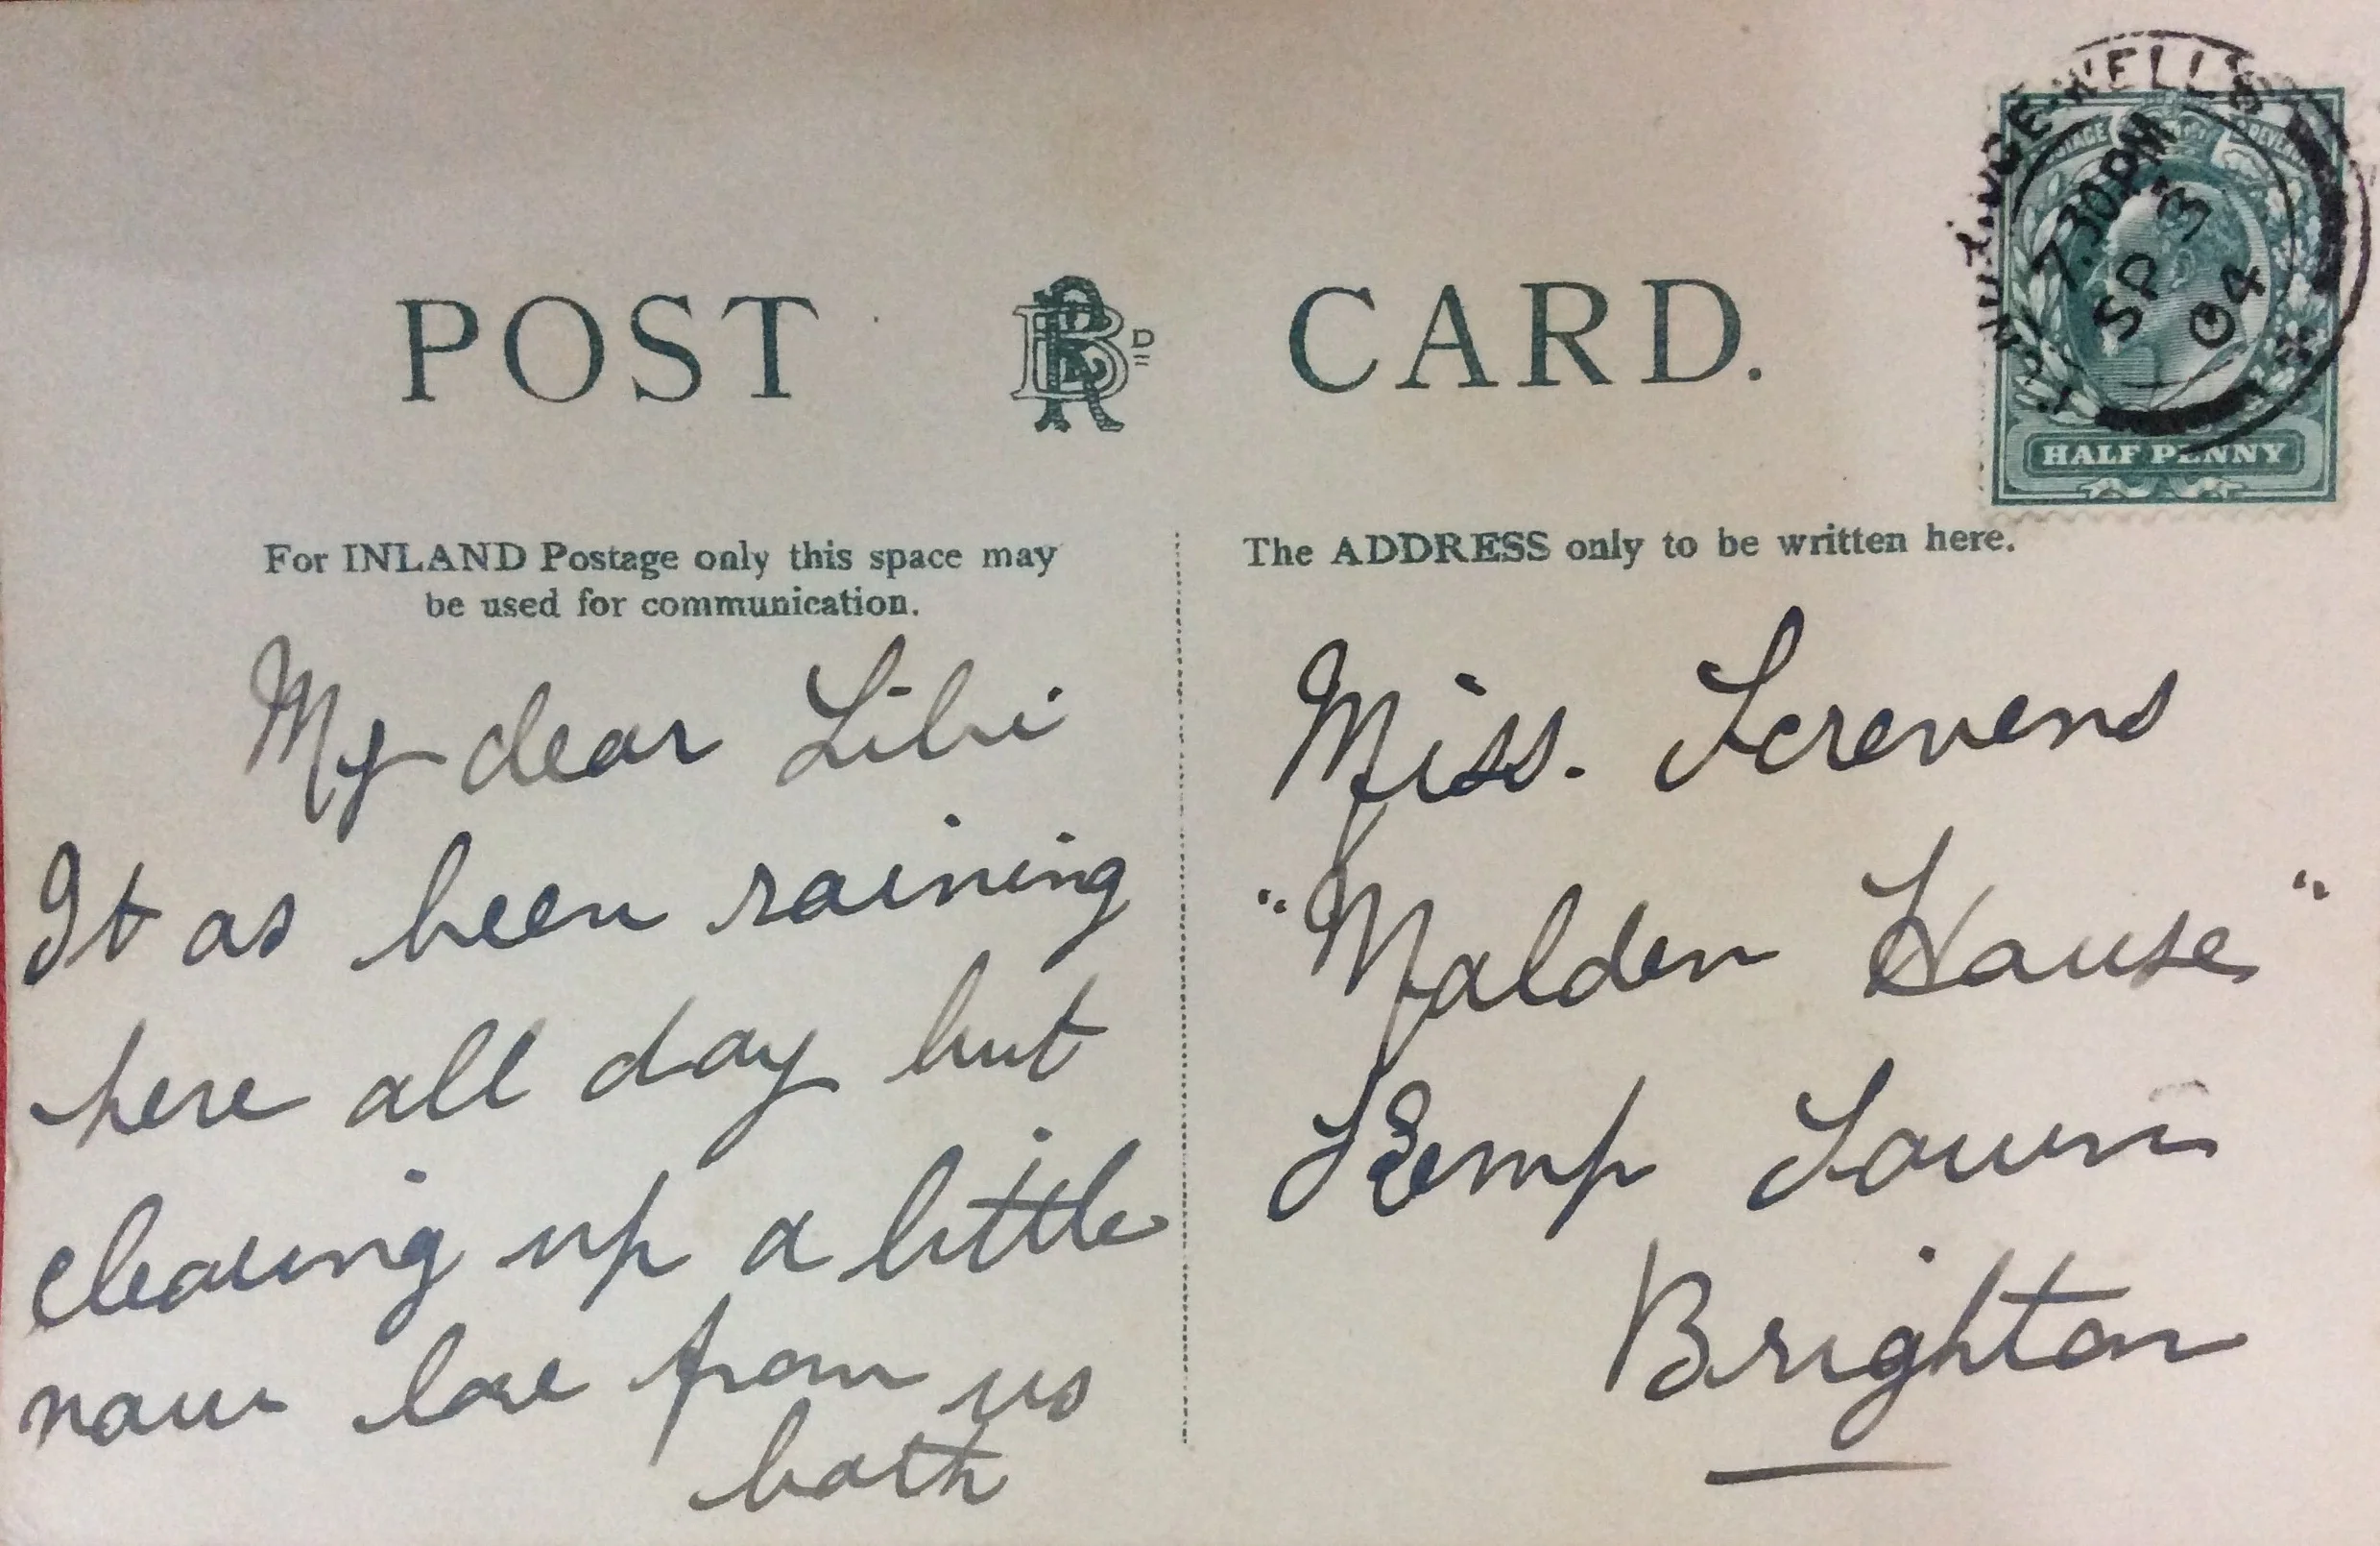 POST CARD.
TUNBRIDGE WELLS
7.30PM
SP 3
04
POSTAGE REVENUE
HALF PENNY
For INLAND Postage only this space may
be used for communication.
My dear Libi
It as been raining
here all day but
clearing up a little
now love from us
both
The ADDRESS only to be written here.
Miss. Screvens
"Malden House"
Kemp Town
Brighton